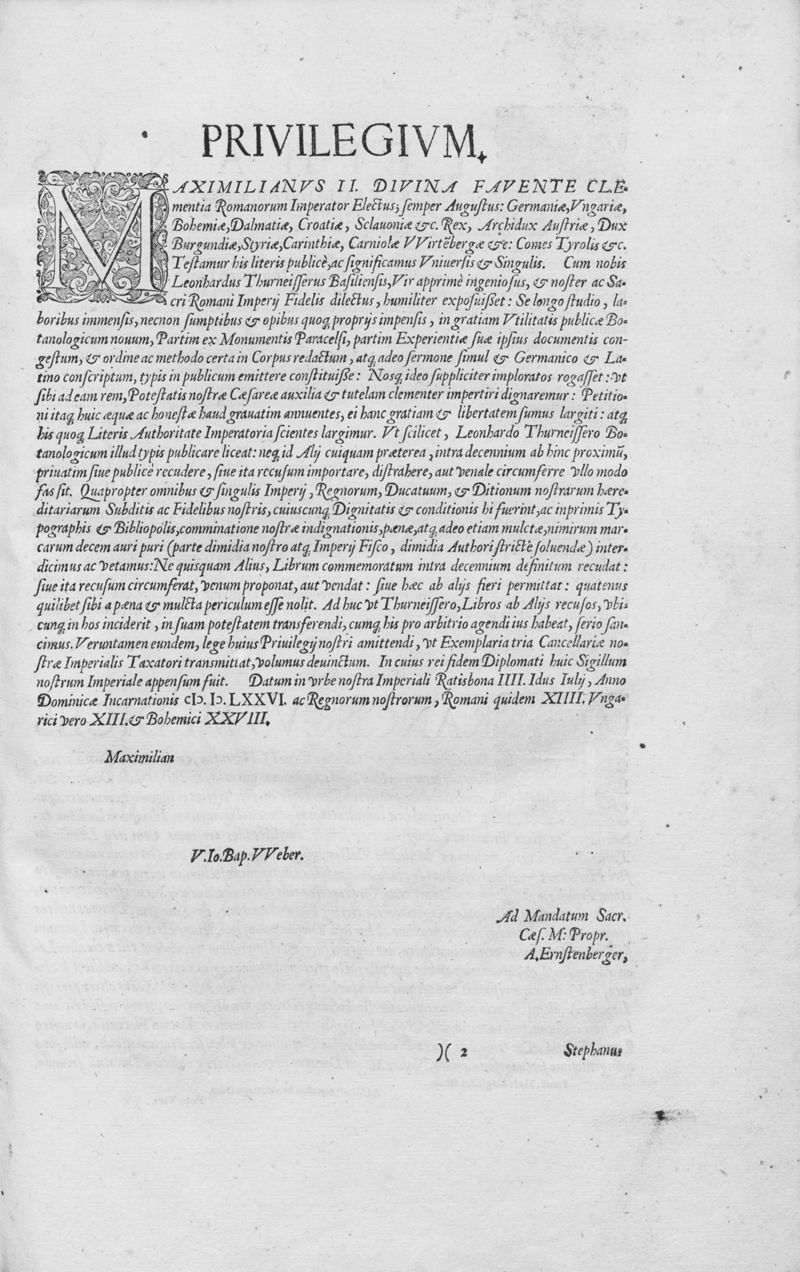 PRIVILEGIVM.
MAXIMILIANVS II. DIVINA FAVENTE CLE-
mentia Romanorum Imperator Electus, semper Augustus: Germaniæ, Vngariæ,
Bohemiæ, Dalmatiæ, Croatiæ, Sclauoniæ &c. Rex, Archidux Austriæ, Dux
Burgundiæ, Styriæ, Carinthiæ, Carniolæ VVirtēbergæ &c: Comes Tyrolis &c.
Testamur his literis publicè, ac significamus Vniuersis & Singulis. Cum nobis
Leonhardus Thurneisserus Basiliensis, Vir apprimè ingeniosus, & noster ac Sa-
cri Romani Imperij Fidelis dilectus, humiliter exposuisset: Se longo studio, la-
boribus immensis, necnon sumptibus & opibus quoq; proprijs impensis, in gratiam Vtilitatis publicæ Bo-
tanologicum nouum, Partim ex Monumentis Paracelsi, partim Experientiæ suæ ipsius documentis con-
gestum, & ordine ac methodo certa in Corpus redactum, atq; adeo sermone simul & Germanico & La-
tino conscriptum, typis in publicum emittere constituisse: Nosq; ideo suppliciter imploratos rogasset: vt
sibi ad eam rem, Potestatis nostræ Cæsareæ auxilia & tutelam clementer impertiri dignaremur: Petitio-
ni itaq; huic æquæ ac honestæ haud grauatim annuentes, ei hanc gratiam & libertatem sumus largiti: atq;
his quoq; Literis Authoritate Imperatoria scientes largimur. Vt scilicet, Leonhardo Thurneissero Bo-
tanologicum illud typis publicare liceat: neq; id Alij cuiquam præterea, intra decennium ab hinc proximū,
priuatim siue publicè recudere, siue ita recusum importare, distrahere, aut venale circumferre vllo modo
fas sit. Quapropter omnibus & singulis Imperij, Regnorum, Ducatuum, & Ditionum nostrarum hære-
ditariarum Subditis ac Fidelibus nostris, cuiuscunq; Dignitatis & conditionis hi fuerint, ac inprimis Ty-
pographis & Bibliopolis, comminatione nostræ indignationis, pænæ, atq; adeo etiam mulctæ, nimirum mar-
carum decem auri puri (parte dimidia nostro atq; Imperij Fisco, dimidia Authori strictè soluendæ) inter-
dicimus ac vetamus: Ne quisquam Alius, Librum commemoratum intra decennium definitum recudat:
siue ita recusum circumferat, venum proponat, aut vendat: siue hæc ab alijs fieri permittat: quatenus
quilibet sibi a pæna & mulcta periculum esse nolit. Ad huc vt Thurneissero, Libros ab Alijs recusos, vbi-
cunq; in hos inciderit, in suam potestatem transferendi, cumq; his pro arbitrio agendi ius habeat, serio san-
cimus. Veruntamen eundem, lege huius Priuilegij nostri amittendi, vt Exemplaria tria Cancellariæ no-
stræ Imperialis Taxatori transmittat, volumus deuinctum. In cuius rei fidem Diplomati huic Sigillum
nostrum Imperiale appensum fuit. Datum in vrbe nostra Imperiali Ratisbona IIII. Idus Iulij, Anno
Dominicæ Incarnationis CIↃ. IↃ. LXXVI. ac Regnorum nostrorum, Romani quidem XIIII. Vnga-
rici vero XIII. & Bohemici XXVIII.
Maximilian
V. Io. Bap. VVeber.
Ad Mandatum Sacr.
Cæs. M: Propr.
A. Ernstenberger,
)( 2 Stephanus